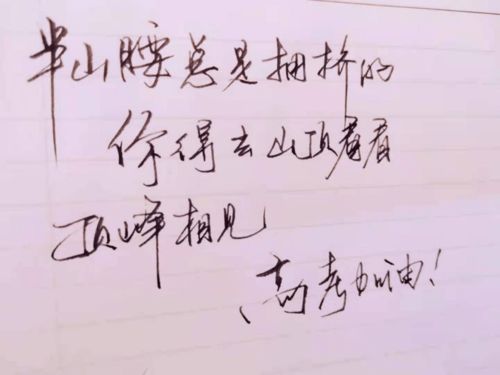 半山腰总是拥挤的
你得去山顶看看
顶峰相见
、高考加油！